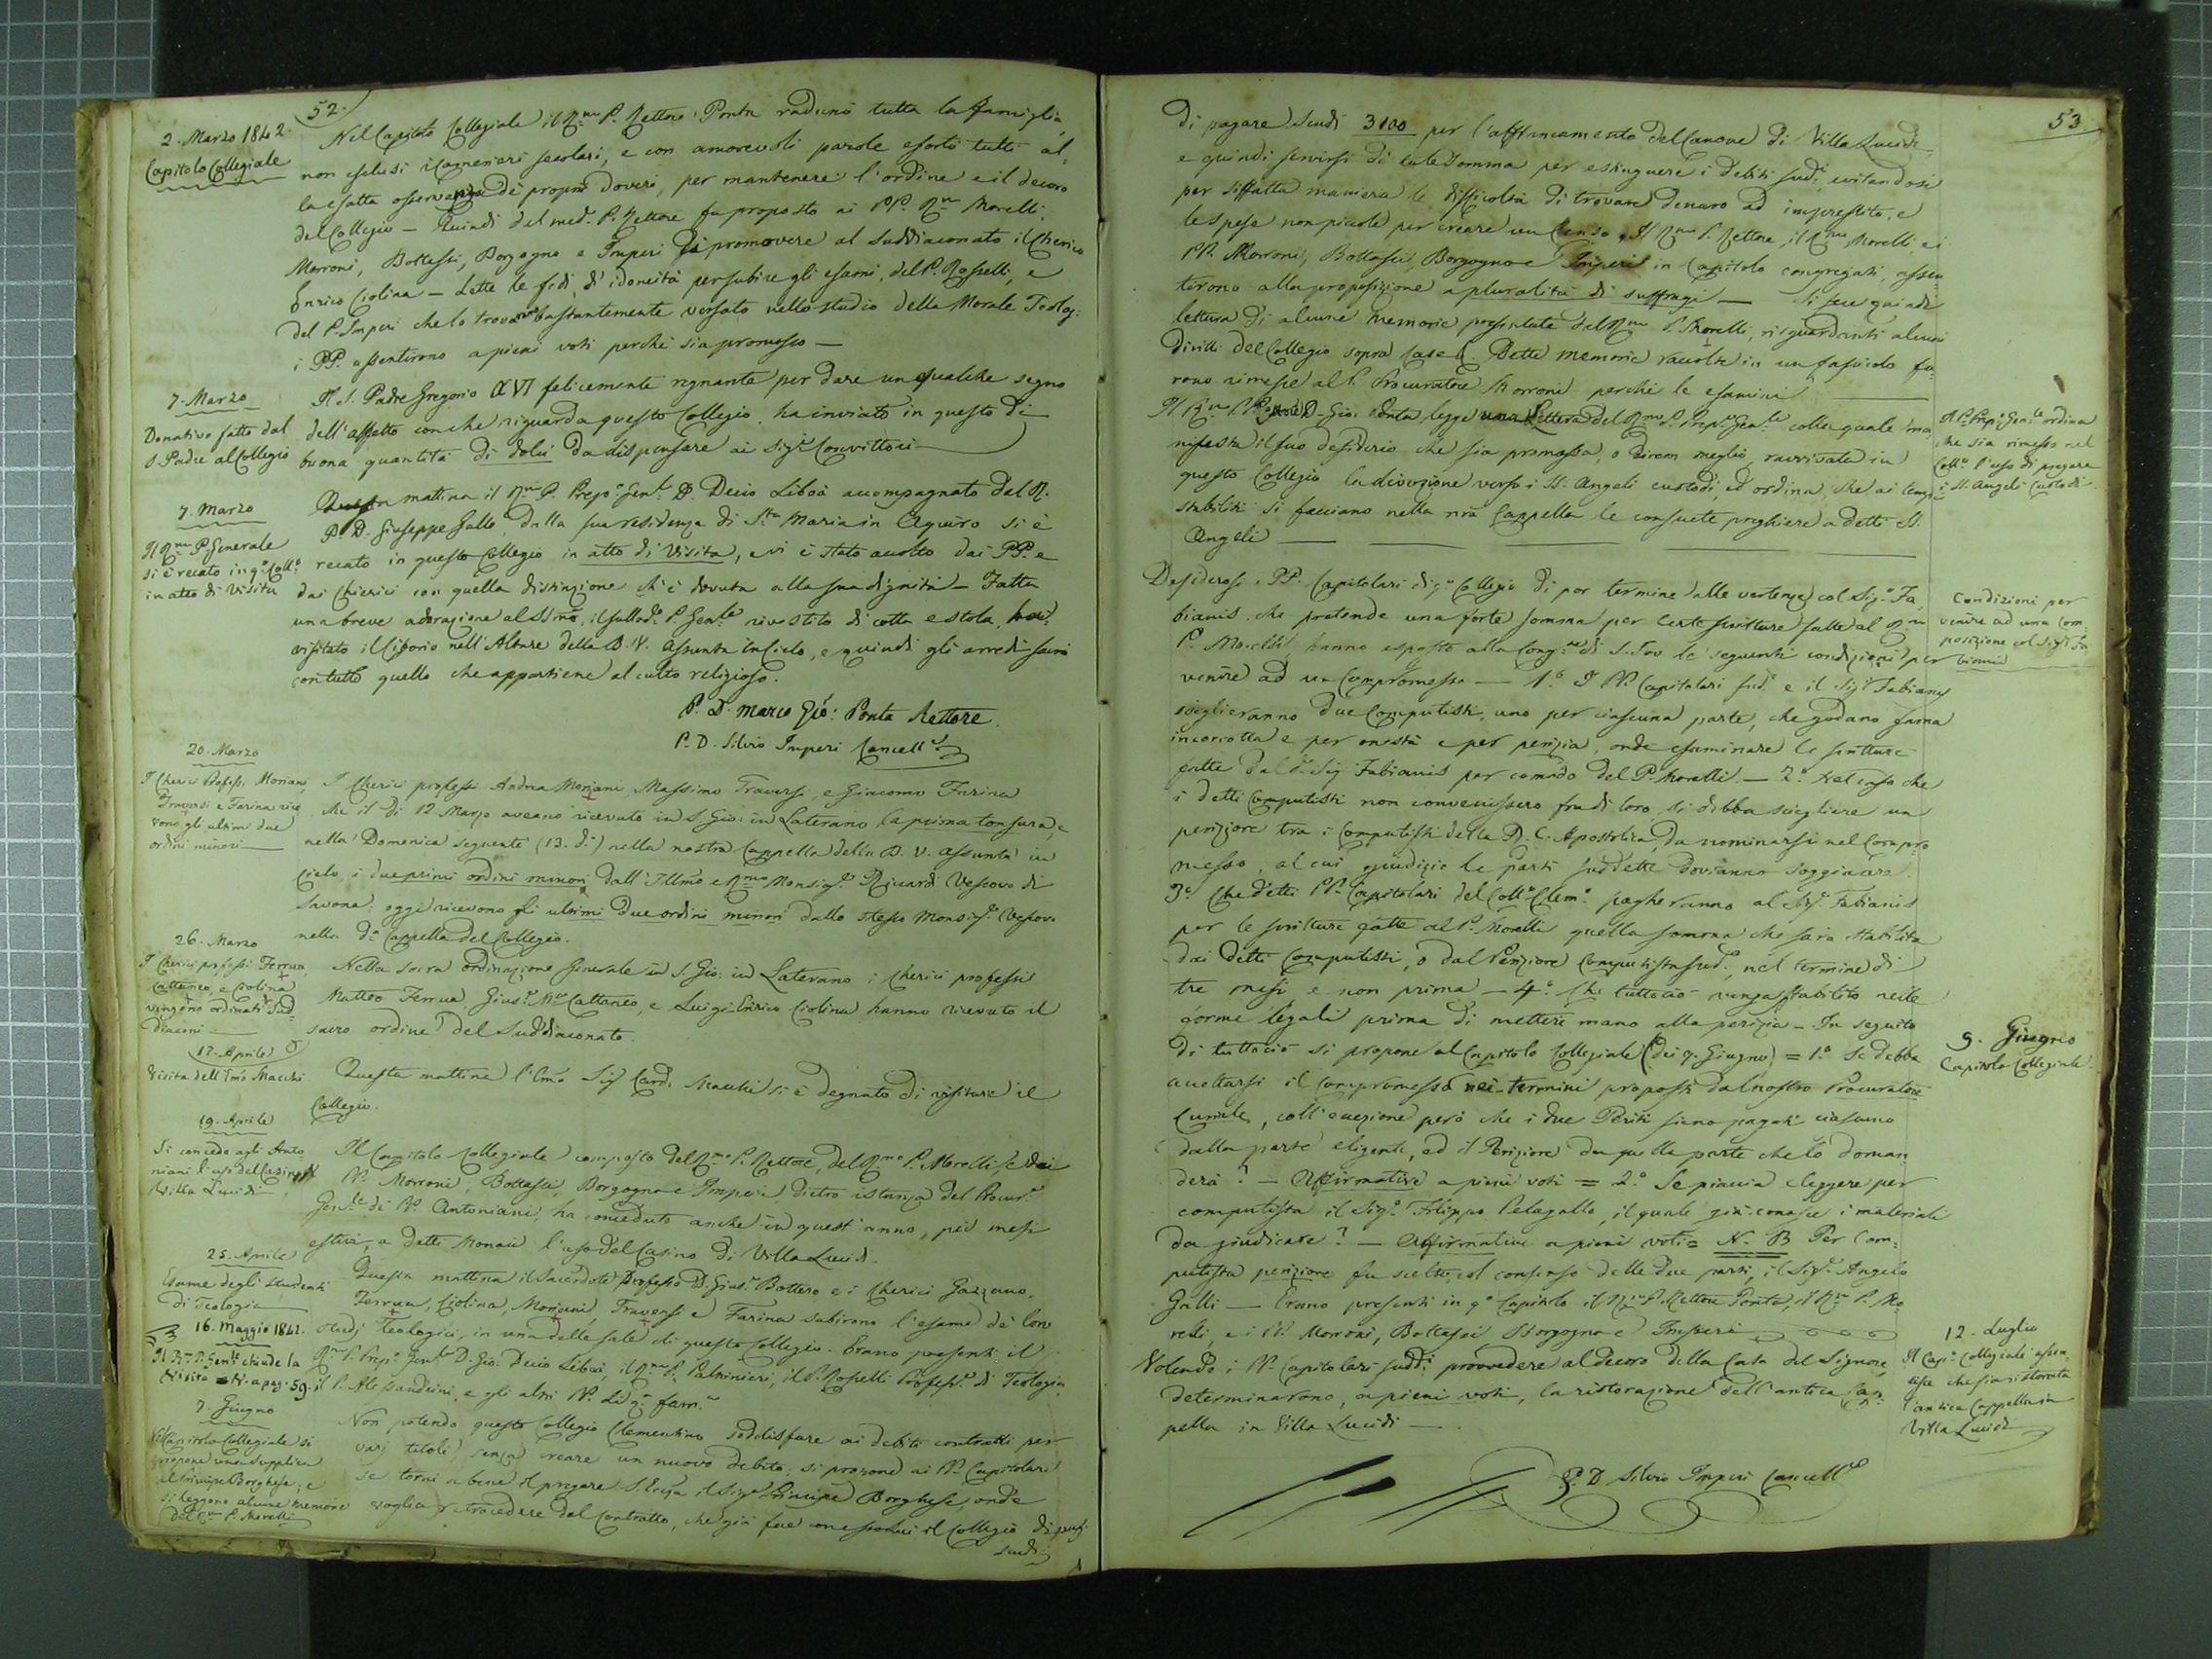 52.
2. Marzo 1842.
Capitolo Collegiale
Nel Capitolo Collegiale il R.mo P. Rettore Ponta radunò tutta la famiglia,
non esclusi i Camerieri secolari, e con amorevoli parole esortò tutti al-
la esatta osservanza de' proprii doveri, per mantenere l'ordine e il decoro
del Collegio — Quindi dal med.o P. Rettore fu proposto ai PP. R.mo Morelli,
Morroni, Bottassi, Borgogno e Imperi di promovere al Suddiaconato il Cherico
Enrico Ciolina — Lette le fedi d'idoneità per subire gli esami, del P. Rosselli, e
del P. Imperi che lo trovarono bastantemente versato nello studio della Morale Teolog:
i PP. assentirono a pieni voti perchè sia promosso —
7. Marzo
Donativo fatto dal
S. Padre al Collegio
Il S. Padre Gregorio XVI felicemente regnante per dare un qualche segno
dell'affetto con che riguarda questo Collegio, ha inviato in questo dì
buona quantità di dolci da dispensare ai Sig.ri Convittori —
7. Marzo
Il R.mo P. Generale
si è recato in q.o Coll.o
in atto di Visita
Questa mattina il R.mo P. Prep.o Gen.le D. Decio Libois accompagnato dal R.
P. D. Giuseppe Gallo dalla sua residenza di S.ta Maria in Aquiro si è
recato in questo Collegio in atto di Visita, e vi è stato accolto dai PP. e
dai Chierici con quella distinzione ch'è dovuta alla sua dignità — Fatta
una breve adorazione al SSmo, il sullod.o P. Gen.le rivestito di cotta e stola,
visitato il Ciborio nell'Altare della B. V. Assunta in Cielo, e quindi gli arredi sacri
con tutto quello che appartiene al culto religioso.
P. D. Marco Gio: Ponta Rettore.
P. D. Silvio Imperi Cancell.e
20. Marzo
I Cherici Professi Moriani,
Traversi e Farina rice-
vono gli ultimi due
ordini minori —
I Cherici professi Andrea Moriani Massimo Traversi, e Giacomo Farina
che il dì 12. Marzo aveano ricevuto in S. Gio: in Laterano la prima tonsura, e
nella Domenica seguente (13. d.o) nella nostra Cappella della B. V. Assunta in
Cielo, i due primi ordini minori dall'Illmo e R.mo Monsig.r Ricardi Vescovo di
Savona; oggi ricevono gli ultimi due ordini minori dallo stesso Monsig.r Vescovo
nella d.a Cappella del Collegio.
26. Marzo
I Cherici professi Ferrua,
Cattaneo, e Ciolina
vengono ordinati Sud-
diaconi —
Nella sacra ordinazione Generale in S. Gio: in Laterano i Cherici professi
Matteo Ferrua, Gius.e M.a Cattaneo, e Luigi Enrico Ciolina hanno ricevuto il
sacro ordine del Suddiaconato.
12. Aprile
Visita dell'Emo Macchi
Questa mattina l'Emo Sig. Card. Macchi si è degnato di visitare il
Collegio.
19. Aprile
Si concede agli Anto-
niani l'uso del Casino di
Villa Lucidi
Il Capitolo Collegiale composto del R.mo P. Rettore, del R.mo P. Morelli e dei
PP. Morroni, Bottassi, Borgogno e Imperi, dietro istanza del Procur.e
Gen.le de' PP. Antoniani, ha conceduto anche in quest'anno, pei mesi
estivi, a detti Monaci l'uso del Casino di Villa Lucidi.
25. Aprile
Esame degli studenti
di Teologia
Questa mattina il Sacerdote Professo D. Gius.e Bottero e i Cherici Gazzano,
Ferrua, Ciolina, Moriani, Traversi e Farina subirono l'esame de' loro
studj Teologici, in una delle sale di questo Collegio. Erano presenti il
R.mo P. Prep.o Gen.le D. Gio: Decio Libois, il R.mo P. Paltrinieri, il P. Rosselli Profess.e di Teologia,
il P. Alessandrini, e gli altri PP. di q.a fam.a
16. Maggio 1842.
Il R.mo P. Gen.le chiude la
Visita = V. a pag. 59.
7. Giugno
Nel Capitolo Collegiale si
propone una supplica
al Principe Borghese; e
si leggono alcune memorie
del R.mo P. Morelli
Non potendo questo Collegio Clementino soddisfare ai debiti contratti per
varj titoli, senza creare un nuovo debito; si propone ai PP. Capitolari
se torni a bene il pregare S. Ecc.za il Sig.r Principe Borghese, onde
voglia retrocedere dal Contratto, che già fece con esso lui il Collegio di pag.
scudi
53
di pagare scudi 3100 per l'affrancamento del Canone di Villa Lucidi
e quindi servirsi di tale Somma per estinguere i debiti sud.i evitandosi
per siffatta maniera le difficoltà di trovare denaro ad imprestito, e
le spese non piccole per creare un Censo. Il R.mo P. Rettore, il R.mo Morelli, e i
PP. Morroni, Bottassi, Borgogno e Imperi in Capitolo congregati, assen-
tirono alla proposizione a pluralità di suffragi — Si fece quindi
lettura di alcune memorie presentate dal R.mo P. Morelli, risguardanti alcuni
diritti del Collegio sopra Case. Dette memorie raccolte in un fascicolo fu-
rono rimesse al P. Procuratore Morroni perchè le esamini —
Il P. Prep.o Gen.le ordina
che sia rimesso nel
Coll.o l'uso di pregare
i SS. Angeli Custodi
Il R.mo P. Rettore D. Gio: Ponta legge una Lettera del R.mo P. Prep.o Gen.le colla quale ma-
nifesta il suo desiderio che sia promossa, o direm meglio, ravvivata in
questo Collegio la divozione verso i SS. Angeli custodi, ed ordina, che ai tempi
stabiliti si facciano nella nra Cappella le consuete preghiere a detti SS.
Angeli —
Condizioni per
venire ad una com-
posizione col Sig.r Fa-
bianis
Desiderosi i PP. Capitolari di q.o Collegio di por termine alle vertenze col Sig.r Fa-
bianis, che pretende una forte somma per certe scritture fatte al R.mo
P. Morelli, hanno esposto alla Cong.ne di S. Ivo le seguenti condizioni per
venire ad un Compromesso — 1.o I PP. Capitolari sud.i e il Sig.r Fabianis
sceglieranno due Computisti, uno per ciascuna parte, che godano fama
incorrotta e per onestà e per perizia, onde esaminare le scritture
fatte dal d.o Sig. Fabianis per comodo del P. Morelli — 2.o Nel caso che
i detti Computisti non convenissero fra di loro, si debba scegliere un
periziore tra i Computisti della R. C. Apostolica, da nominarsi nel Compro-
messo, al cui giudizio le parti suddette dovranno soggiacere.
3.o Che detti PP. Capitolari del Coll.o Clem.o pagheranno al Sig.r Fabianis
per le scritture fatte al P. Morelli quella somma che sarà stabilita
dai detti Computisti, o dal Periziore Computista sud.o, nel termine di
tre mesi e non prima — 4.o Che tuttociò venga stabilito nelle
forme legali prima di mettere mano alla perizia — In seguito
9. Giugno
Capitolo Collegiale
di tuttociò si propone al Capitolo Collegiale (dei 9. Giugno) = 1.o Se debba
accettarsi il Compromesso nei termini proposti dal nostro Procuratore
Curiale, coll'eccezione però che i due Periti siano pagati ciascuno
dalla parte eligente, ed il Periziore da quella parte che lo doman-
derà? — Affirmative a pieni voti = 2.o Se piaccia eleggere per
computista il Sig.r Filippo Pelagallo, il quale già conosce i materiali
da giudicare? — Affirmative a pieni voti = N. B. Per Com-
putista periziore fu scelto, col consenso delle due parti, il Sig.r Angelo
Galli — Erano presenti in q.o Capitolo il R.mo P. Rettore Ponta, il R.mo P. Mo-
relli, e i PP. Morroni, Bottassi, Borgogno e Imperi
12. Luglio
Il Cap.o Collegiale assen-
tisce che sia ristorata
l'antica Cappella in
Villa Lucidi
Volendo i PP. Capitolari sudd.i provvedere al decoro della Casa del Signore,
determinarono, a pieni voti, la ristorazione dell'antica Cap-
pella in Villa Lucidi —
P. D. Silvio Imperi Cancell.e